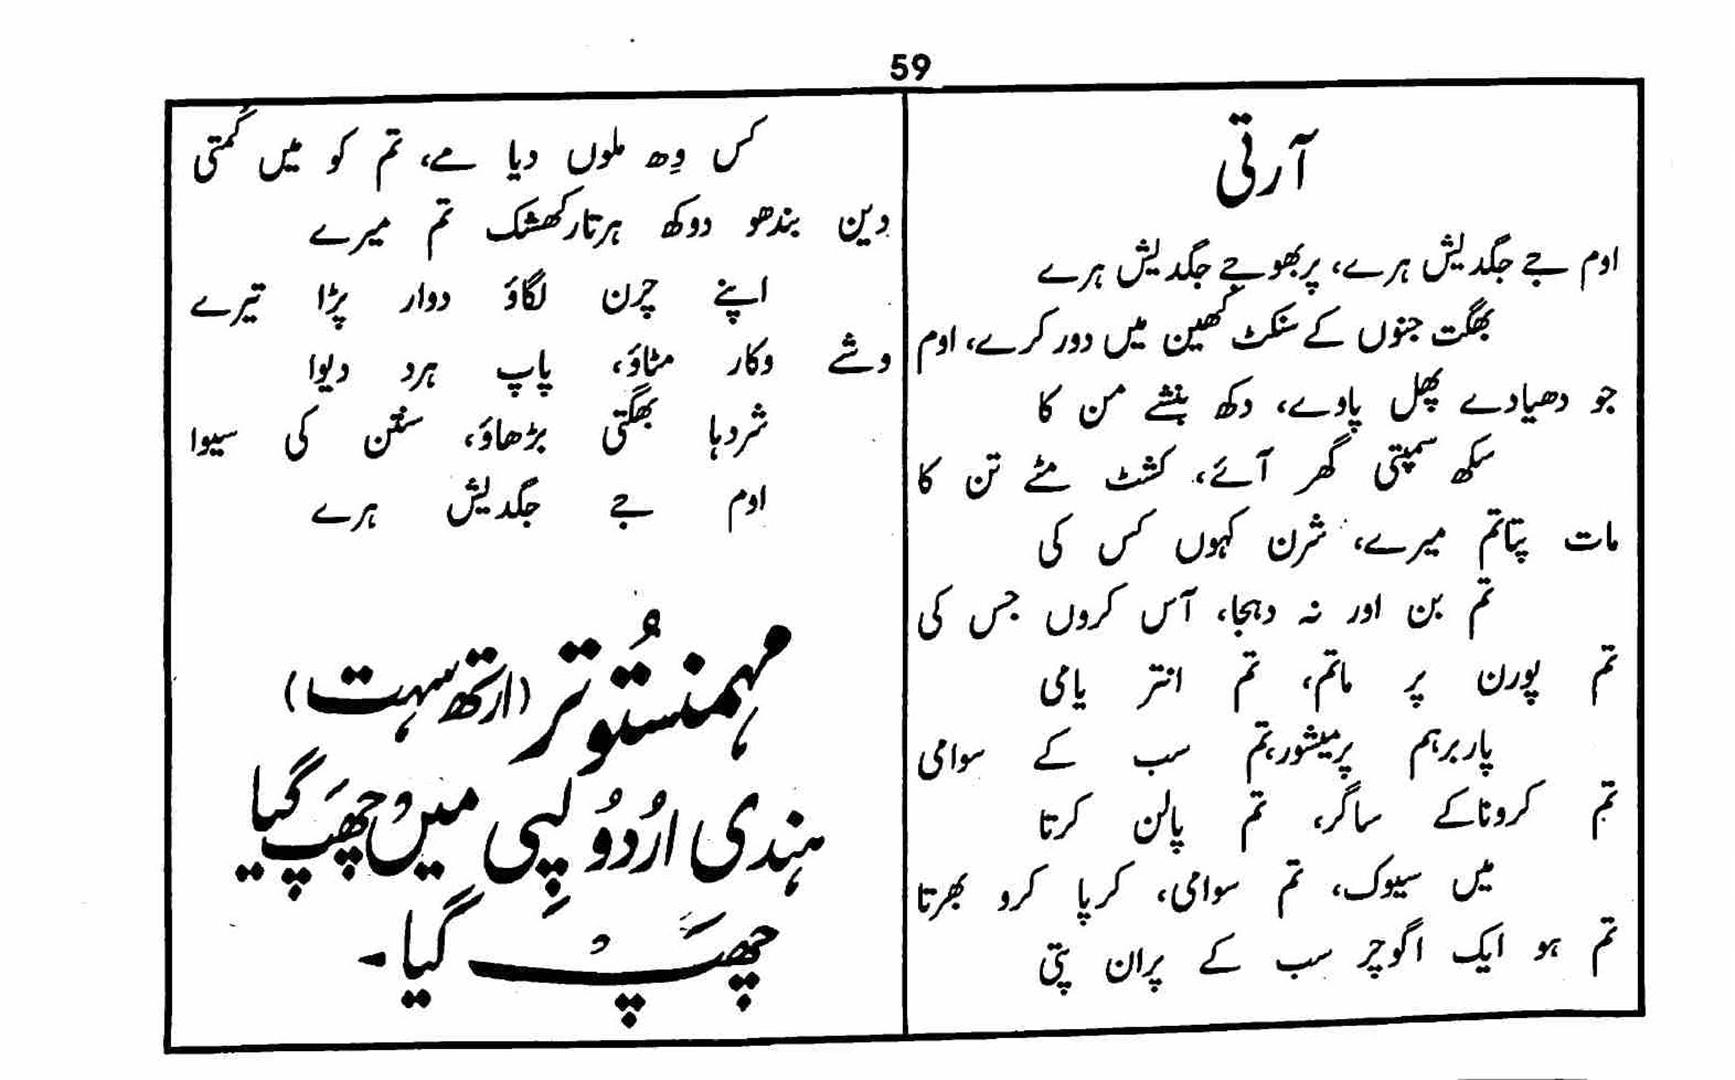 59
آرتی
اوم جے جگدیش ہرے، پربھو جے جگدیش ہرے
بھگت جنوں کے سنکٹ کھین میں دور کرے، اوم
جو دھیادے پھل پاوے، دکھ بنشے من کا
سکھ سمپتی گھر آئے، کشٹ مٹے تن کا
مات پتاتم میرے، شرن کہوں کس کی
تم بن اور نہ دہجا، آس کروں جس کی
تم پورن پر ماتم، تم انتر یامی
پاربرہم پرمیشور،تم سب کے سوامی
تم کروناکے ساگر، تم پالن کرتا
میں سیوک، تم سوامی، کرپا کرو بھرتا
تم ہو ایک اگوچر سب کے پران پتی
کس وِھ ملوں دیا مے، تم کو میں کُمتی
دین بندھو دوکھ ہرتارکھشک تم میرے
اپنے چرن لگاؤ دوار پڑا تیرے
وشے وکار مٹاؤ، پاپ ہرد دیوا
شردہا بھگتی بڑھاؤ، سنتن کی سیوا
اوم جے جگدیش ہرے
مہمنستُوتر (ارتھ سہت)
ہندی اردُو لِپی میں چھَپ گیا
چھَپ گیا۔